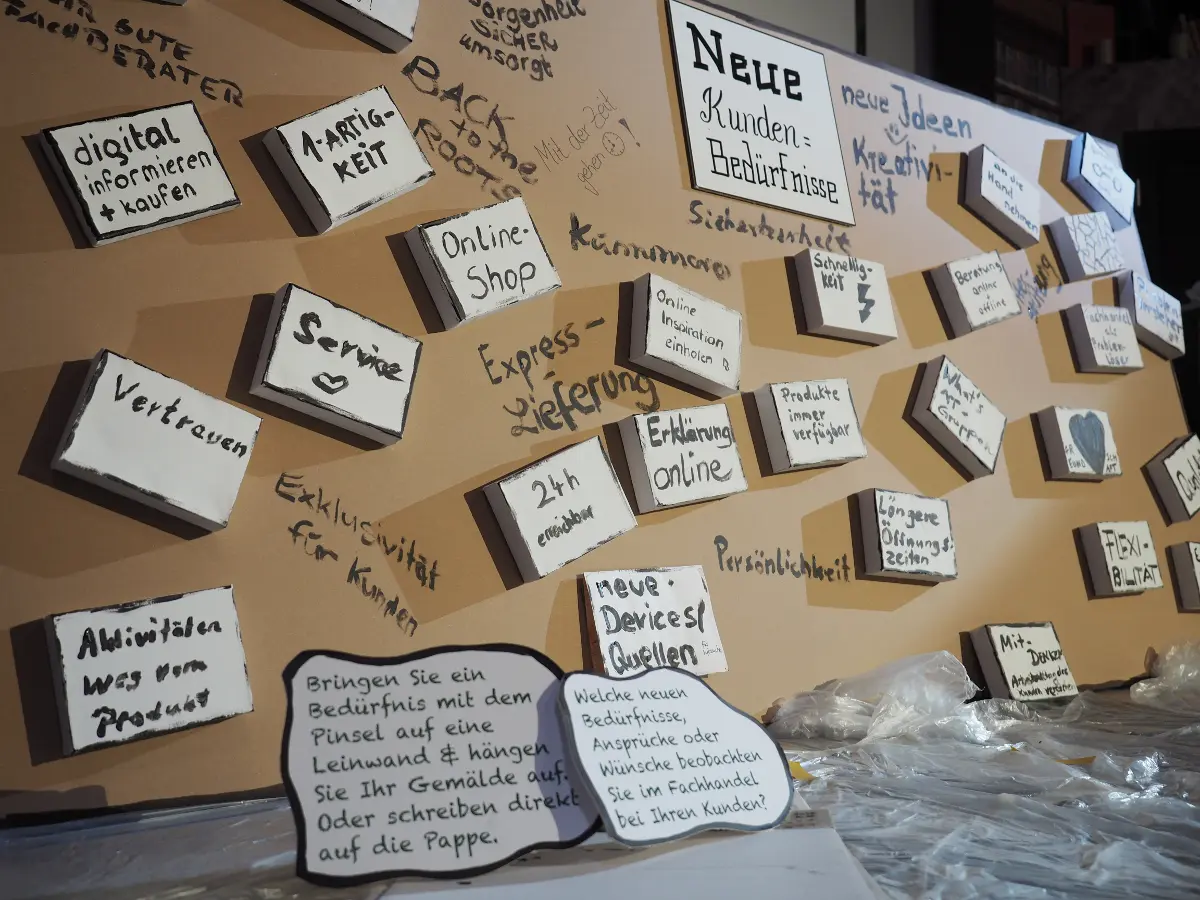 GUTE
BERATER
SICHER
umsorgt
BACK
to the
ROOTS
Mit der Zeit
gehen !
Neue
Kunden=
Bedürfnisse
neue Ideen
Kreativi-
tät
digital
informieren
+ kaufen
1-ARTIG-
KEIT
Online-
Shop
an die
Hand
nehmen
Schnellig-
keit
Beratung
online +
offline
Online
Inspiration
einholen
Service
Vertrauen
Express-
Lieferung
Fachhandel
als
Problem-
löser
Produkte
immer
verfügbar
What's
APP
Gruppen
Erklärung
online
24h
erreichbar
Exklusivität
für Kunden
Längere
Öffnungs
zeiten
Persönlichkeit
FLEXI-
BILITÄT
neue
Devices/
Quellen
Aktivitäten
weg vom
Produkt
Mit-
Denken
Bringen Sie ein
Bedürfnis mit dem
Pinsel auf eine
Leinwand & hängen
Sie Ihr Gemälde auf.
Oder schreiben direkt
auf die Pappe.
Welche neuen
Bedürfnisse,
Ansprüche oder
Wünsche beobachten
Sie im Fachhandel
bei Ihren Kunden?